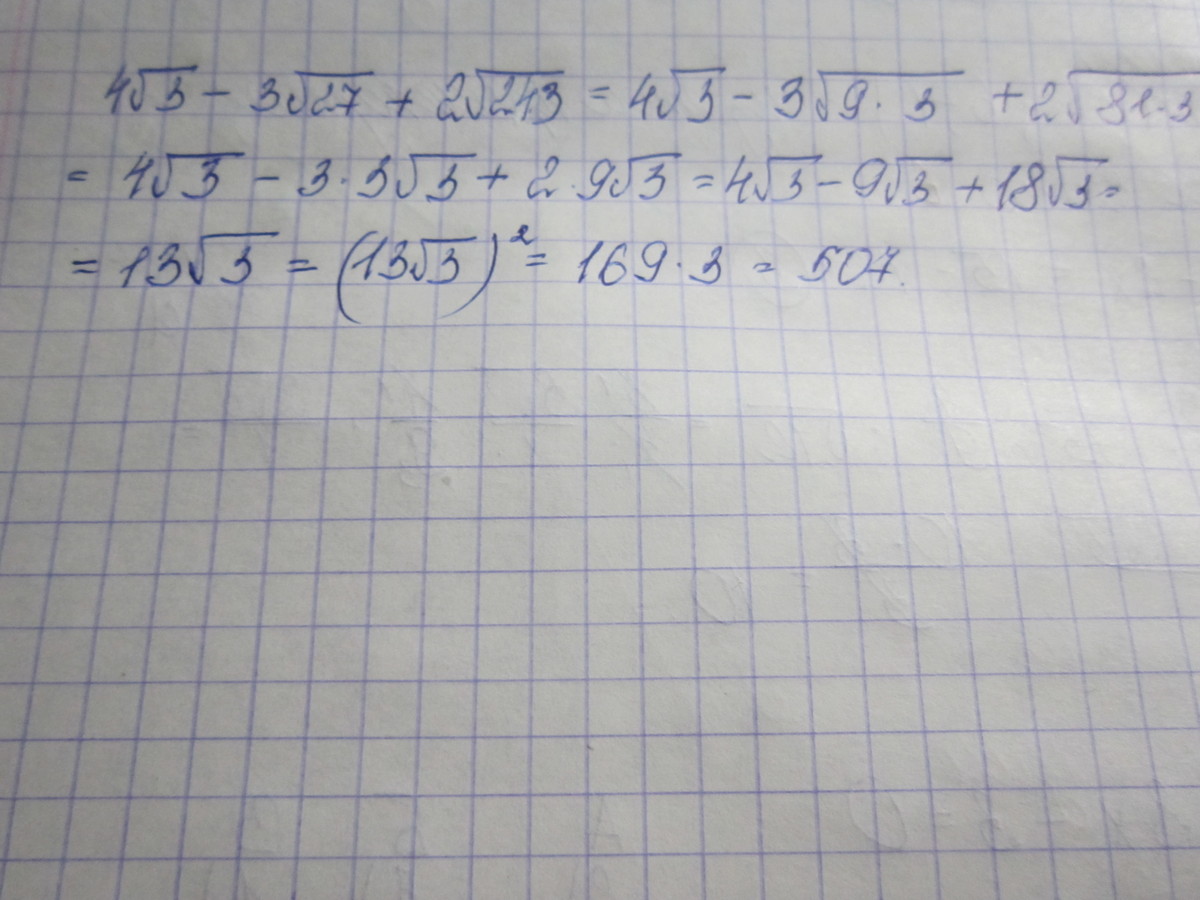 4√3 - 3√27 + 2√243 = 4√3 - 3√9·3 + 2√81·3
= 4√3 - 3·3√3 + 2·9√3 = 4√3 - 9√3 + 18√3 =
= 13√3 = (13√3)² = 169·3 = 507.